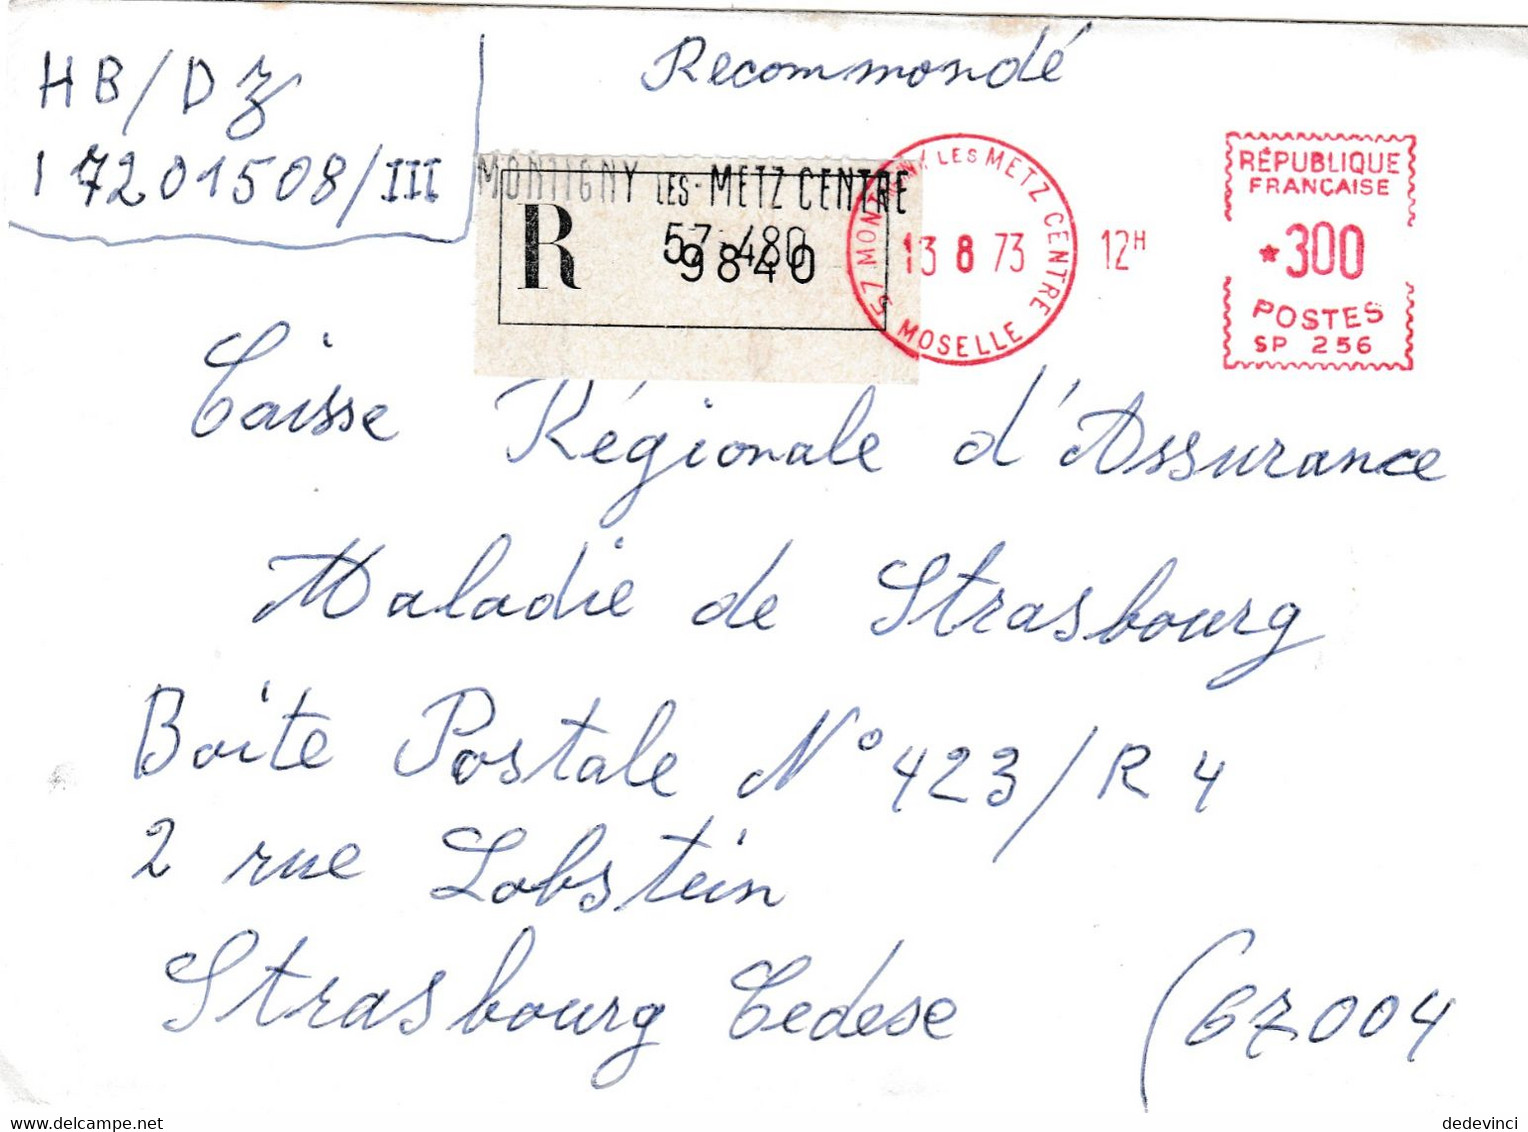 Recommondé
HB/DZ
17201508/III
MONTIGNY LES-METZ CENTRE
57-480
R 9840
57 MONTIGNY LES METZ CENTRE
13 8 73
MOSELLE
12H
RÉPUBLIQUE
FRANÇAISE
*300
POSTES
SP 256
Caisse Régionale d'Assurance
Maladie de Strasbourg
Boite Postale N° 423/R 4
2 rue Lobstein
Strasbourg Cedese (67004
dedevinci